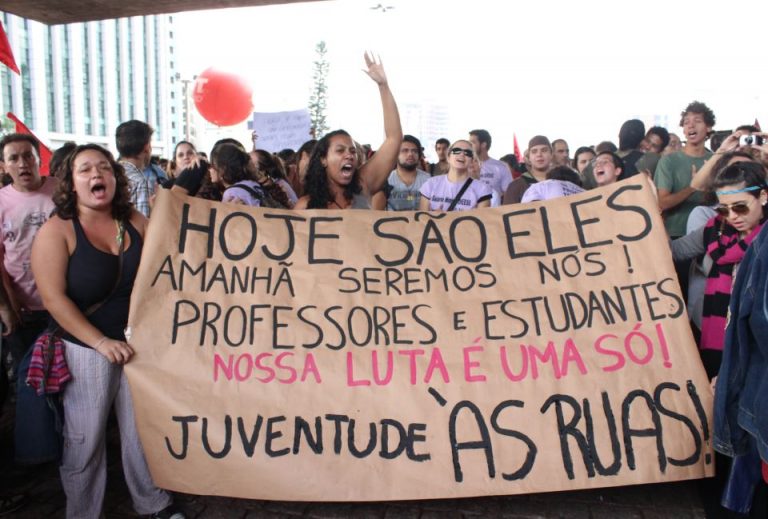 HOJE SÃO ELES
AMANHÃ SEREMOS NÓS!
PROFESSORES E ESTUDANTES
NOSSA LUTA É UMA SÓ!
JUVENTUDE ÀS RUAS!